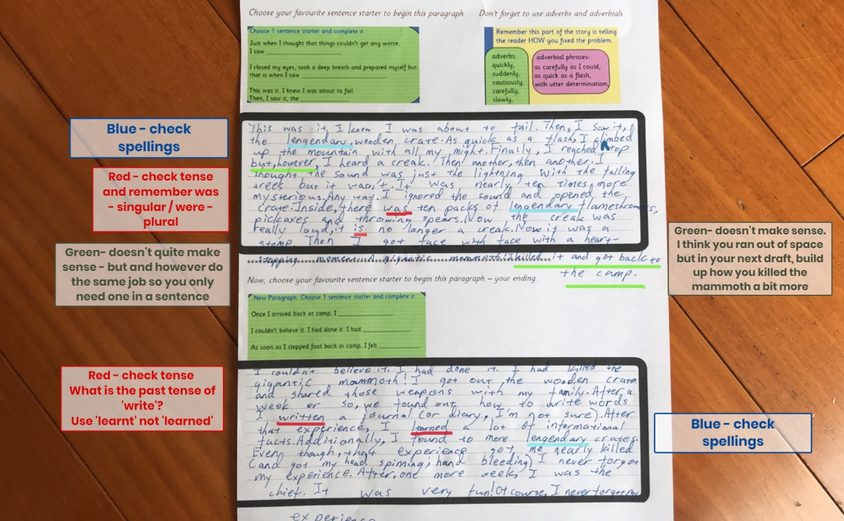 Choose your favourite sentence starter to begin this paragraph
Don't forget to use adverbs and adverbials
Choose 1 sentence starter and complete it
Just when I thought that things couldn't get any worse,
I saw
I closed my eyes, took a deep breath and prepared myself but
that is when I saw
This was it. I knew I was about to fail.
Then, I saw, the
Remember this part of the story is telling
the reader HOW you fixed the problem.
adverbs:
quickly,
suddenly,
cautiously,
carefully,
slowly,
adverbial phrases:
as carefully as I could,
as quick as a flash,
with utter determination,
Blue - check
spellings
Red - check tense
and remember was
- singular / were -
plural
Green- doesn't quite make
sense - but and however do
the same job so you only
need one in a sentence
This was it, I knew I was about to fail. Then, I saw it,
the lengendary, wooden crate. As quick as a flash, I climbed
up the mountain with all my might. Finally, I reached top
but, however, I heard a creak. Then another, then another. I
thought the sound was just the lightning with the falling
trees but it wasn't. It was nearly ten times more
mysterious. Any way, I ignored the sound and opened the
crate. Inside, there was ten packs of lengendary flamethrowers,
pickaxes and throwing spears. Now the creak was
really loud, it is no longer a creak. Now it was a
stomp. Then I got face with face with a heart-
stopping moment. A gigantic mammoth. I killed it and got back to
the camp.
Green- doesn't make sense.
I think you ran out of space
but in your next draft, build
up how you killed the
mammoth a bit more
Now, choose your favourite sentence starter to begin this paragraph – your ending.
New Paragraph: Choose 1 sentence starter and complete it
Once I arrived back at camp, I
I couldn't believe it. I had done it. I had
As soon as I stepped foot back in camp, I felt
Red - check tense
What is the past tense of
'write'?
Use 'learnt' not 'learned'
I couldn't believe it. I had done it. I had killed the
gigantic mammoth! I got out the wooden crate
and shared those weapons with my family. After a
week or so, we found out how to write words
I written a journal (or diary, I'm not sure). After
that experience, I learned a lot of informational
facts. Additionally, I found to more lengendary crates.
Even though, that experience got me nearly killed
(and got my head spinning; hand bleeding) I never forgot
my experience. After, one more week, I was the
chief. It was very fun! Of course, I never forgot my
experience
Blue - check
spellings